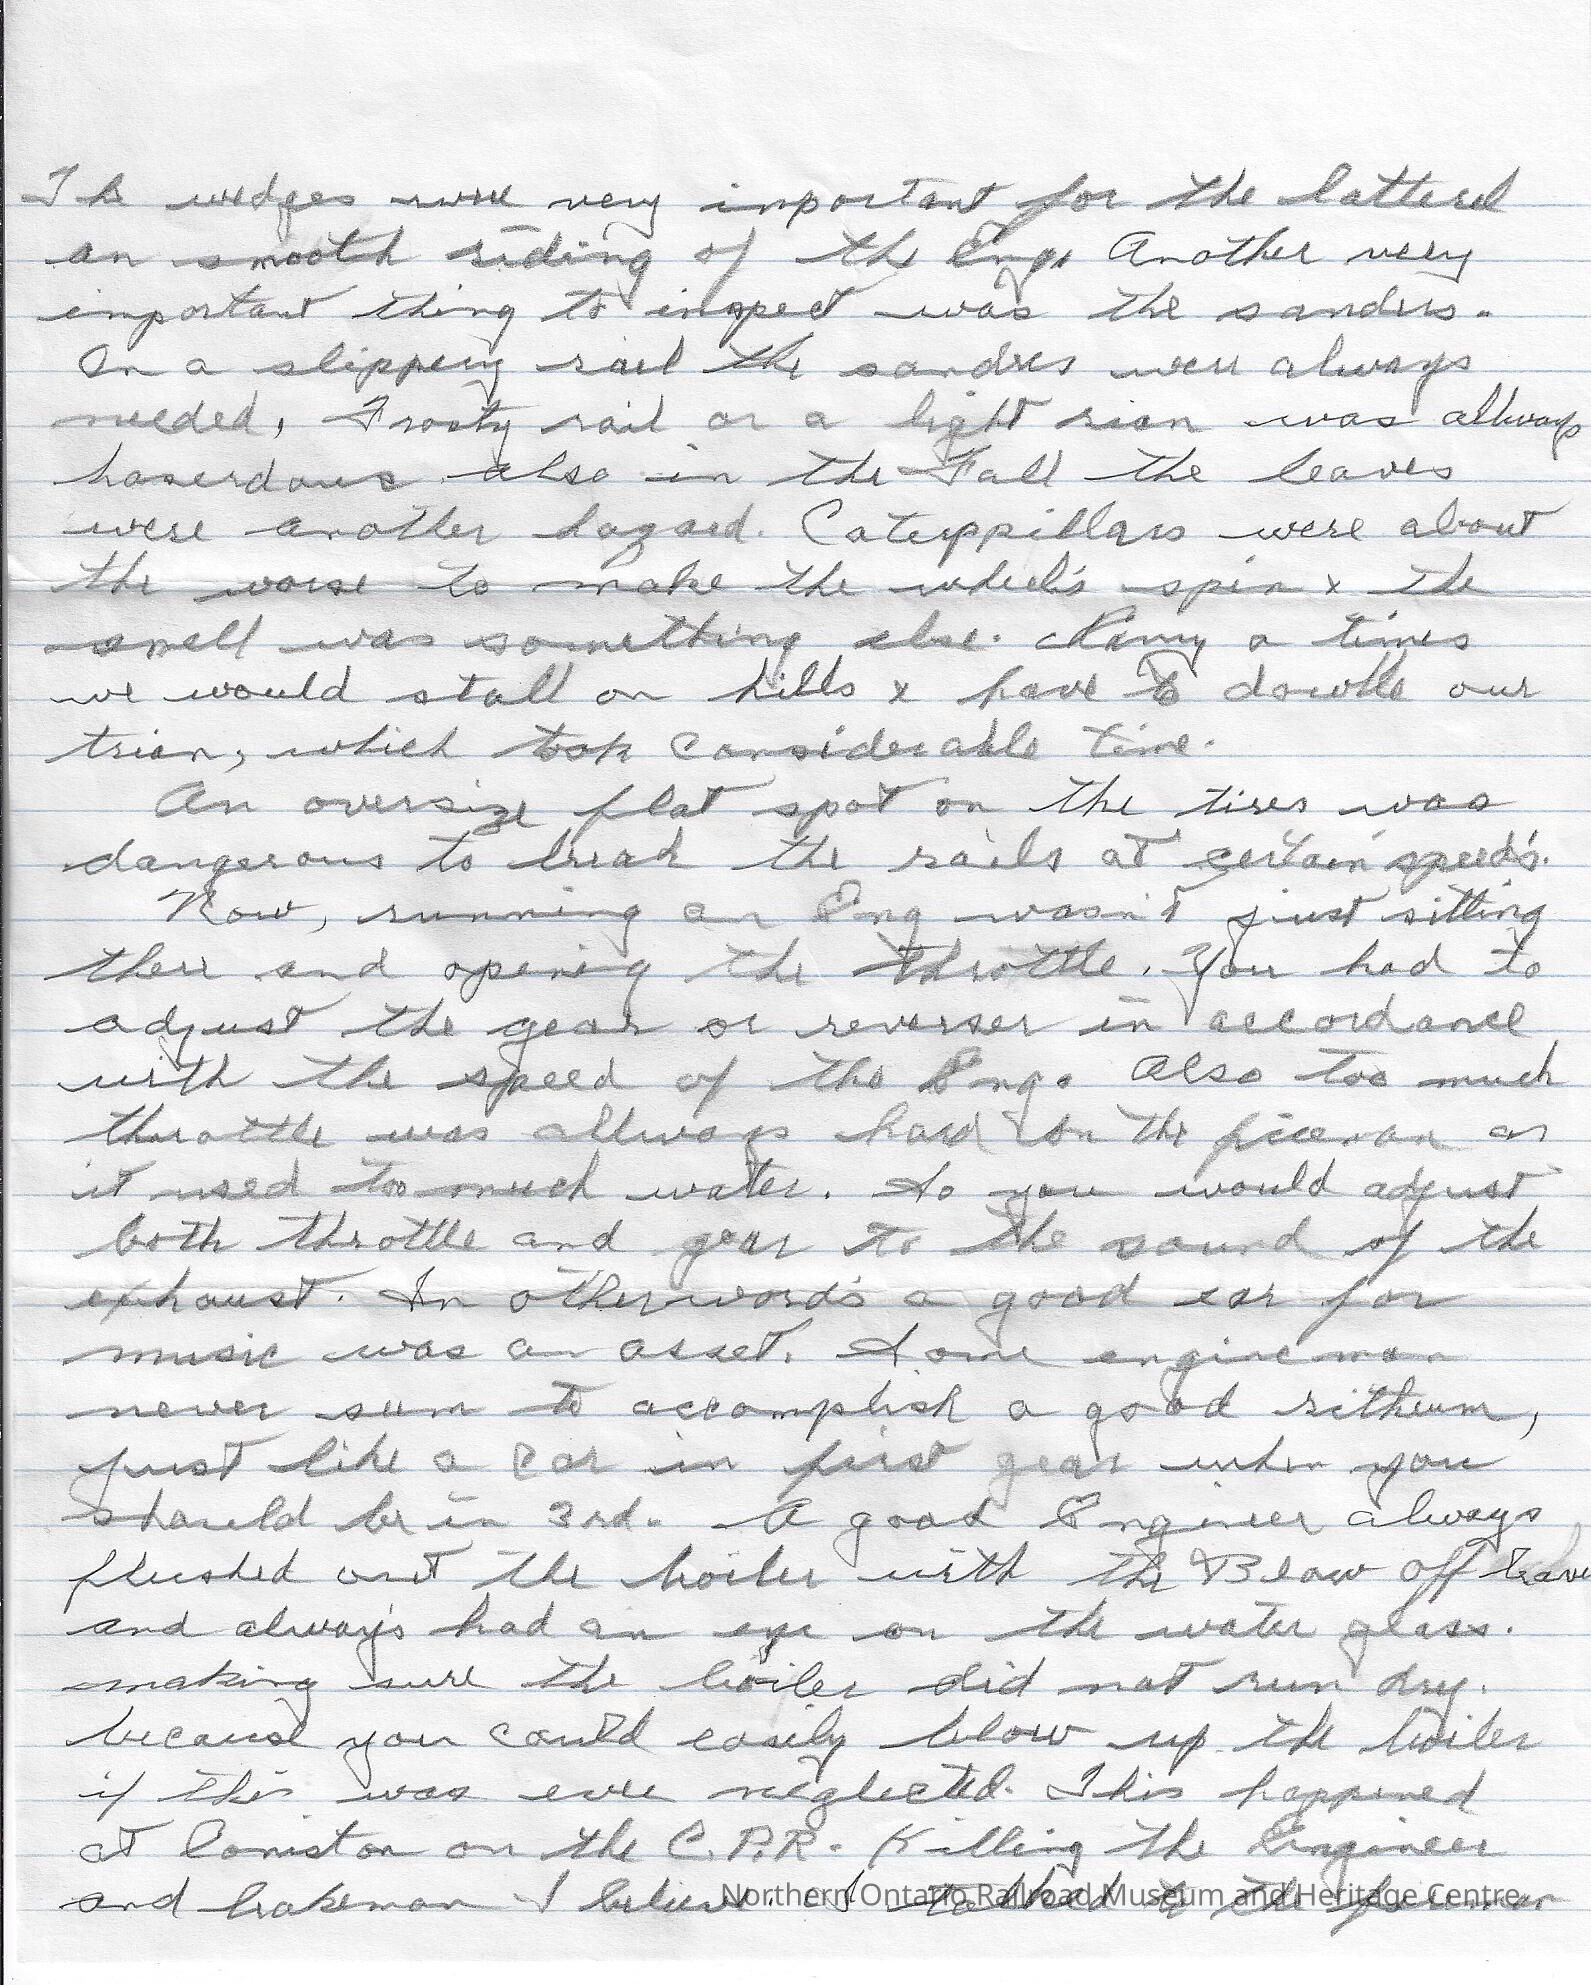 The wedges were very important for the latteral
an smooth riding of the Eng. Another very
important thing to inspect was the sanders.
On a slippery rail the sandres were always
needed, Frosty rail or a light rian was allways
haserdous also in the Fall the leaves
were another hazard. Caterppillars were about
the worse to make the wheel's spin x the
smell was something else. Many a times
we would stall on hills x have to double our
trian, which took considerable time.
An oversize flat spot on the tires was
dangerous to break the rails at certain speed's.
Now, running an Eng wasn't just sitting
there and opening the throttle. You had to
adjust the gear or reverser in accordance
with the speed of the Eng. Also too much
throttle was allways hard on the fireman as
it used too much water. So you would adjust
both throttle and gear to the sound of the
exhaust. In otherword's a good ear for
music was an asset. Some engineman
never seem to accomplish a good ritheum,
just like a car in first gear when you
should be in 3rd. A good Engineer always
flushed out the boiler with the Blow off
and alway's had an eye on the water glass.
making sure the boiler did not run dry.
because you could easily blow up the boiler
if this was ever neglected. This happened
at Coniston on the C.P.R. Killing the Engineer
and brakeman I believe. I talked to the fireman
Northern Ontario Railroad Museum and Heritage Centre